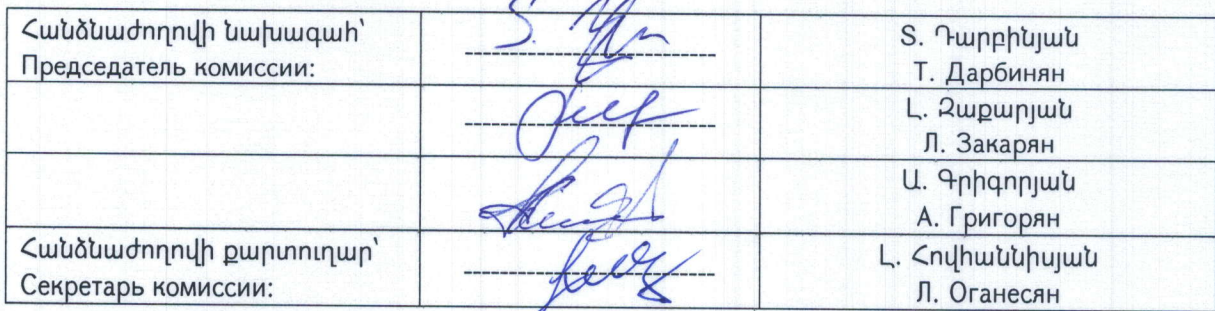 Հանձնաժողովի նախագահ՝
Председатель комиссии:
Տ. Դարբինյան
Т. Дарбинян
Լ. Զաքարյան
Л. Закарян
Ա. Գրիգորյան
А. Григорян
Հանձնաժողովի քարտուղար՝
Секретарь комиссии:
Լ. Հովհաննիսյան
Л. Оганесян